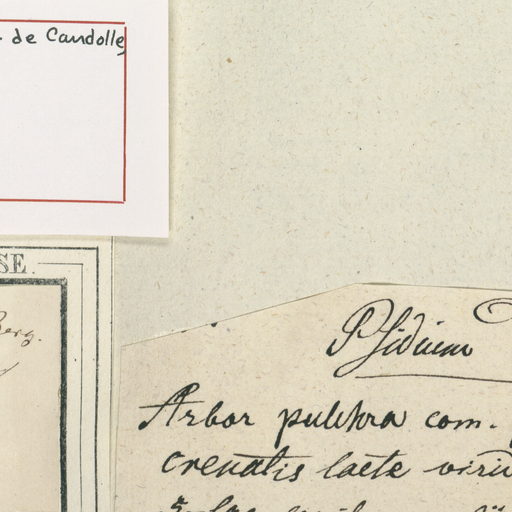 de Candolle
SE
Berg.
Psidium
Arbor pulchra com.
crenatis laete viri